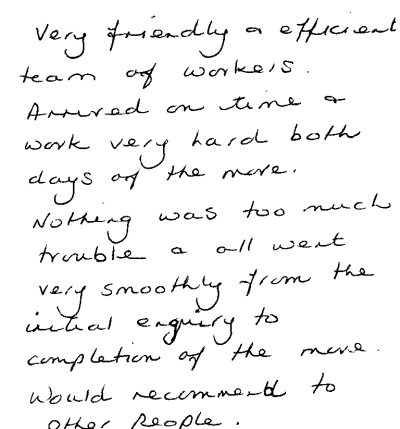 Very friendly & efficient
team of workers.
Arrived on time &
work very hard both
days of the move.
Nothing was too much
trouble & all went
very smoothly from the
initial enquiry to
completion of the move.
Would recommend to
other people.